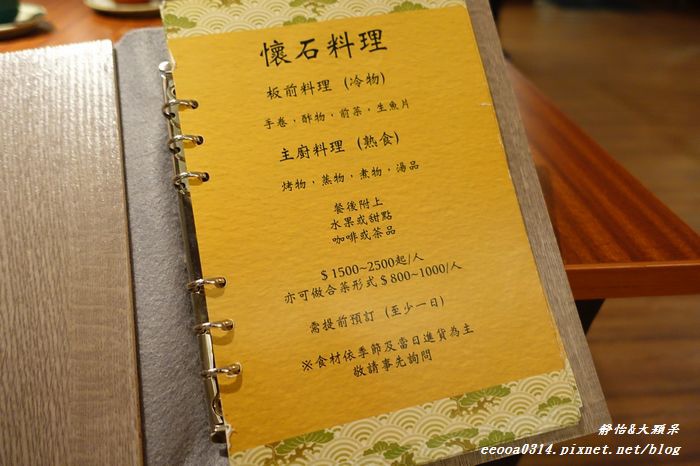 懷石料理
板前料理 (冷物)
手卷,酢物,前菜,生魚片
主廚料理 (熟食)
烤物,蒸物,煮物,湯品
餐後附上
水果或甜點
咖啡或茶品
$ 1500~2500起/人
亦可做合菜形式 $ 800~1000/人
需提前預訂 (至少一日)
※食材依季節及當日進貨為主
敬請事先詢問
靜怡&大顆呆
eeooa0314.pixnet.net/blog